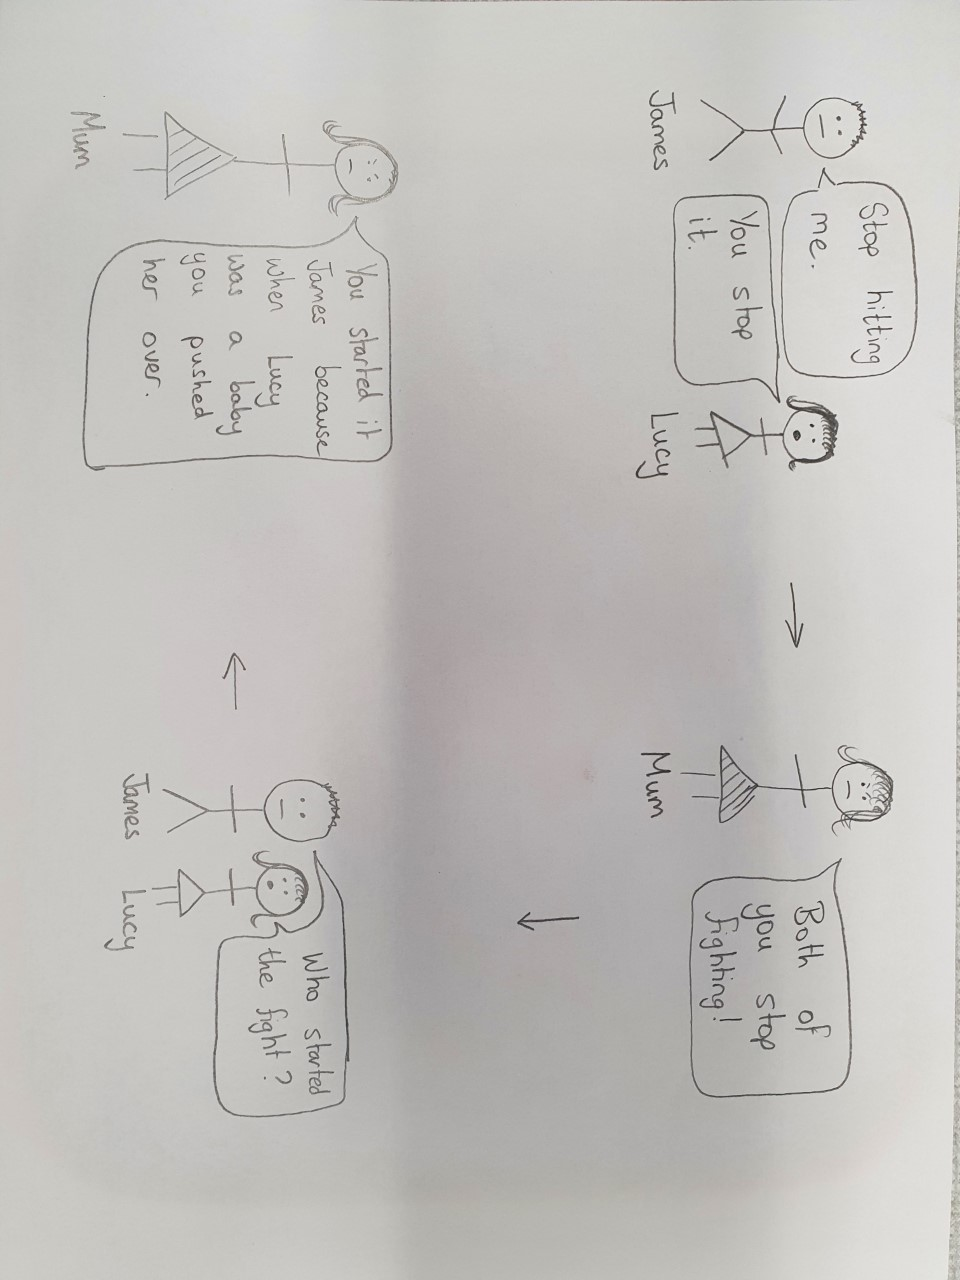 Stop hitting
me.
You stop
it.
James
Lucy
Both of
you stop
fighting!
Mum
Who started
the fight?
James
Lucy
You started it
James because
when Lucy
was a baby
you pushed
her over.
Mum